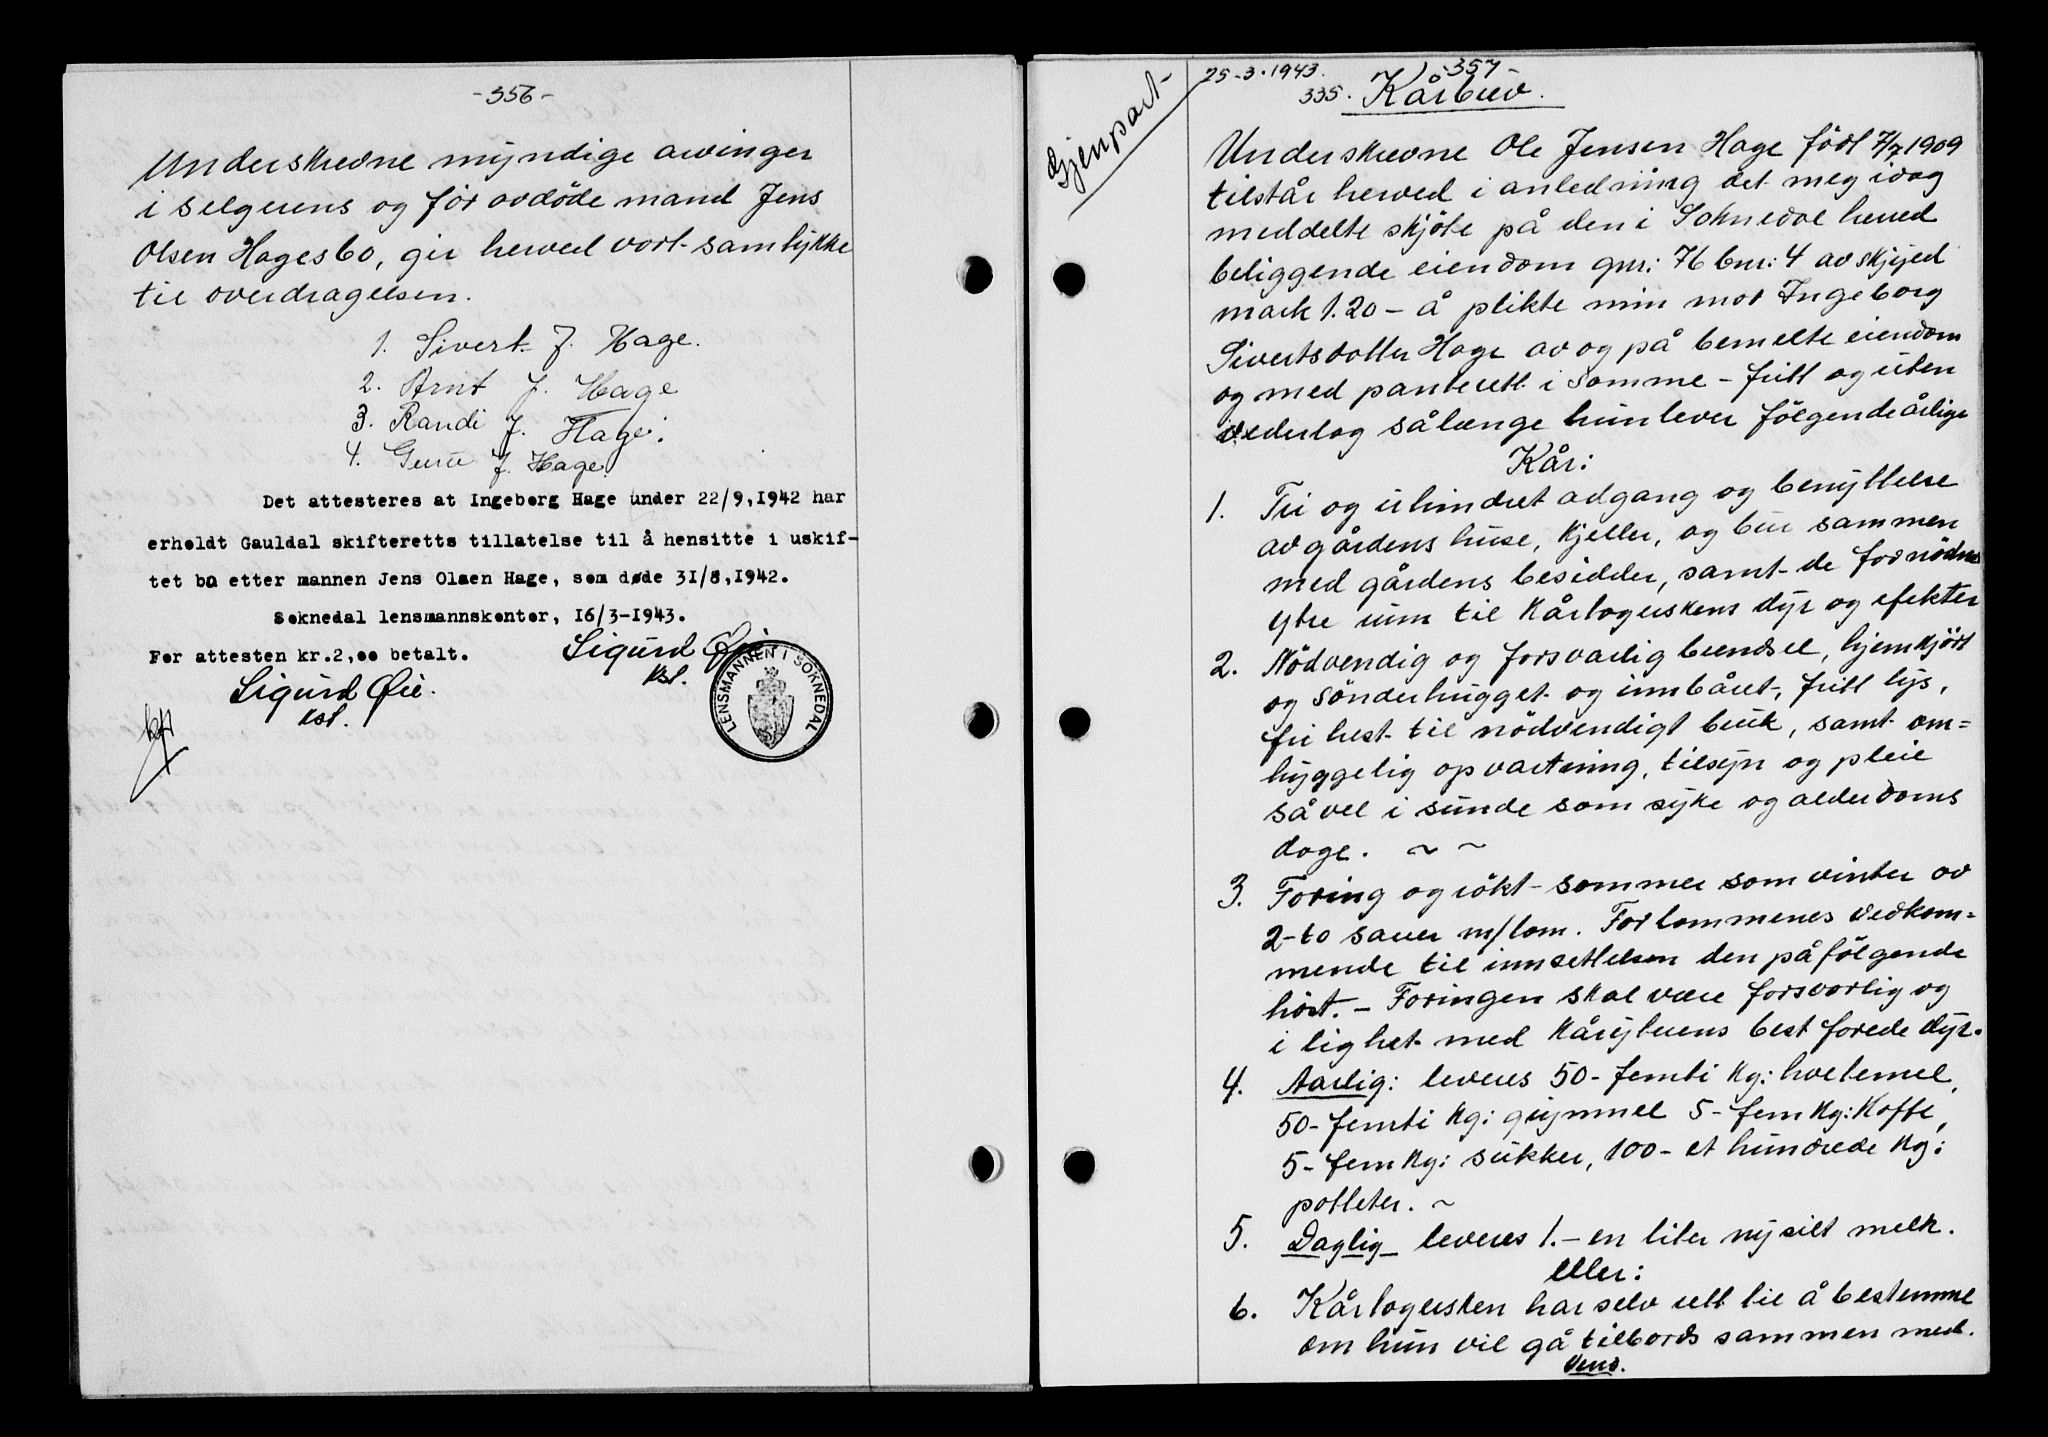 -356-
Underskrevne myndige arvinger
i selgerens og før avdöde mand Jens
Olsen Hagesbo, gir herved vort samtykke
til overdragelsen.
1. Sivert J. Hage.
2. Arnt J. Hage
3. Randi J. Hage.
4. Guru J. Hage
Det attesteres at Ingeborg Hage under 22/9,1942 har
erholdt Gauldal skifteretts tillatelse til å hensitte i uskif-
tet bo etter mannen Jens Olsen Hage, som døde 31/8,1942.
Soknedal lensmannskontor, 16/3-1943.
For attesten kr.2,oo betalt.
Sigurd Øie
kst.
Sigurd Øie.
kst.
LENSMANNEN I SOKNEDAL
Gjenpart-
-357-
25-3-1943.
335. Kårbrev.
Underskrevne Ole Jensen Hage född 7/7 1909
tilstår herved i anledning det meg idag
meddelte skjöte på den i Soknedal herred
beliggende eiendom gnr: 76 bnr: 4 av skyld
mark 1.20 - å plikte min mor Ingeborg
Sivertsdatter Hage av og på bemelte eiendom
og med panterett i samme - fritt og uten
vederlag sålænge hun lever fölgende årlige
Kår:
1. Fri og uhindret adgang og benyttelse
av gårdens huse, kjeller, og bur sammen
med gårdens besidder, samt de fornödne
ytre rum til kårtagerskens dyr og efekter
2. Nödvendig og forsvarlig brendsel, hjemkjört
og sönderhugget og innbåret, fritt lys,
fri hest til nödvendigt bruk, samt om=
hyggelig opvartning, tilsyn og pleie
såvel i sunde som syke og alderdoms
dage. ~ ~
3. Foring og rökt - sommer som vinter av
2-to sauer m/lam. For lammenes vedkom=
mende til innsettelsen den påfölgende
höst. - Foringen skal være forsvarlig og
i lighet med kårytterens best forede dyr.
4. Aarlig: leveres 50 - femti kg: hvetemel,
50 - femti kg: grynmel 5 - fem kg: Kaffe,
5 - fem kg: sukker, 100 - et hundrede kg:
potteter. ~
5. Daglig leveres 1. - en liter nysilt melk.
eller:
6. Kårtagersken har selv rett til å bestemme
om hun vil gå tilbords sammen med.
Vend.